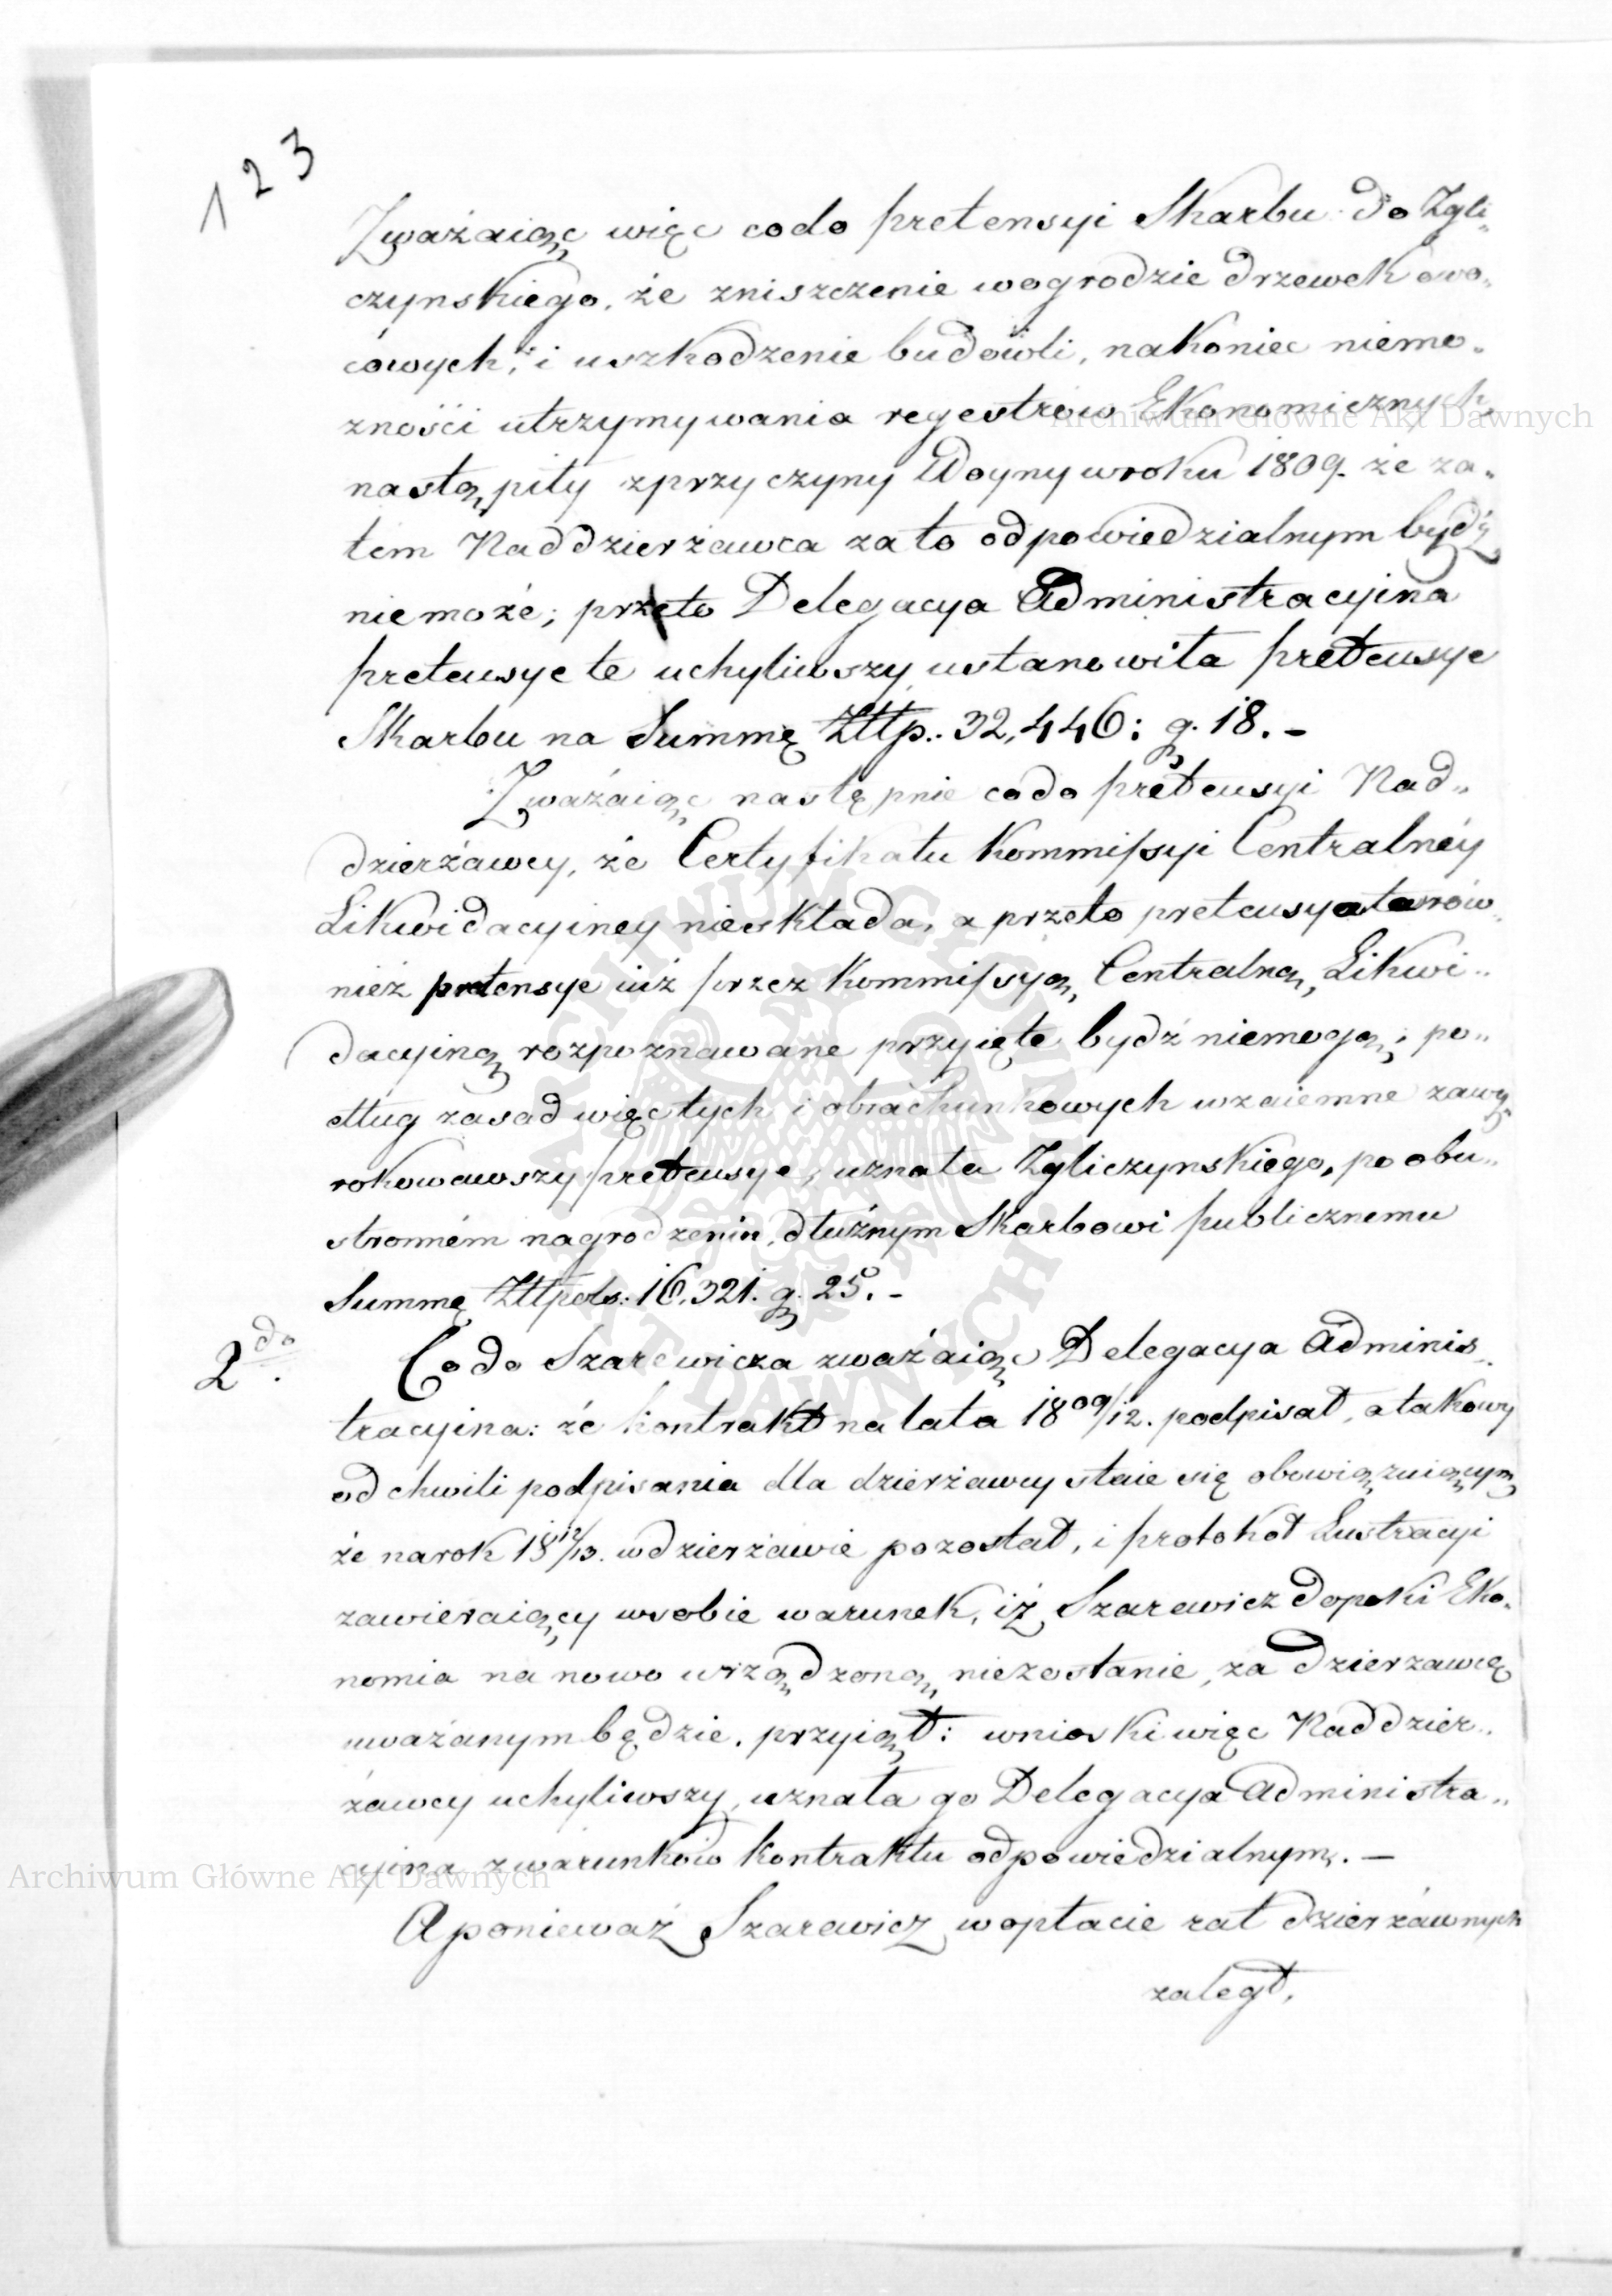 123
Zważaiąc więc codo pretensyi Skarbu do Zgli„
czynskiego, że zniszczenie wogrodzie drzewek owo„
cówych, i uszkodzenie budówli, nakoniec niemo„
znośći utrzymywania regestrów Ekonomicznych,
nastąpiły zprzyczyny Woyny wroku 1809. że za„
tém Naddzierżawca zato odpowiedzialnym bydź
niemoże; przeto Delegacya Administracyina
pretensye te uchyliwszy, ustanowiła pretensye
Skarbu na Summę Złłp. 32,446: g. 18. –
Zważaiąc następnie codo pretensyi Nad„
dzierżawcy, że Certyfikatu Kommissyi Centralnéy
Likwidacyiney nieskłada, a przeto pretensya ta rów„
nież pretensye iuż przez Kommissyą Centralną Likwi„
dacyiną rozpoznawane przyięte bydź niemogą; po„
dług zasad więc tych i obrachunkowych wzaiemne zawy„
rokowawszy pretensye, uznała Zgliczynskiego, po obu„
stronném nagrodzeniu, dłużnym Skarbowi publicznemu
Summę Złłpols: 16,321. g. 25. –
2do. Codo Szarewicza zważaiąc Delegacya Adminis„
tracyina: że kontrakt na lata 1809/12. podpisał, a takowy
od chwili podpisania dla dzierżawcy staie się obowiązuiącym
że narok 1812/13. wdzierżawie pozostał, i protokół Lustracyi
zawieraiący wsobie warunek, iż Szarewicz dopoki Eko„
nomia na nowo urządzoną niezostanie, za dzierzawcę
uważanym będzie, przyiął: wnioski więc Naddzier„
żawcy uchyliwszy, uznała go Delegacya Administra„
cyina zwarunków kontraktu odpowiedzialnym. –
A ponieważ Szarewicz wopłacie rat dzierżawnych
zaległ,
Archiwum Główne Akt Dawnych
ARCHIWUM GŁÓWNE AKT DAWNYCH
Archiwum Główne Akt Dawnych